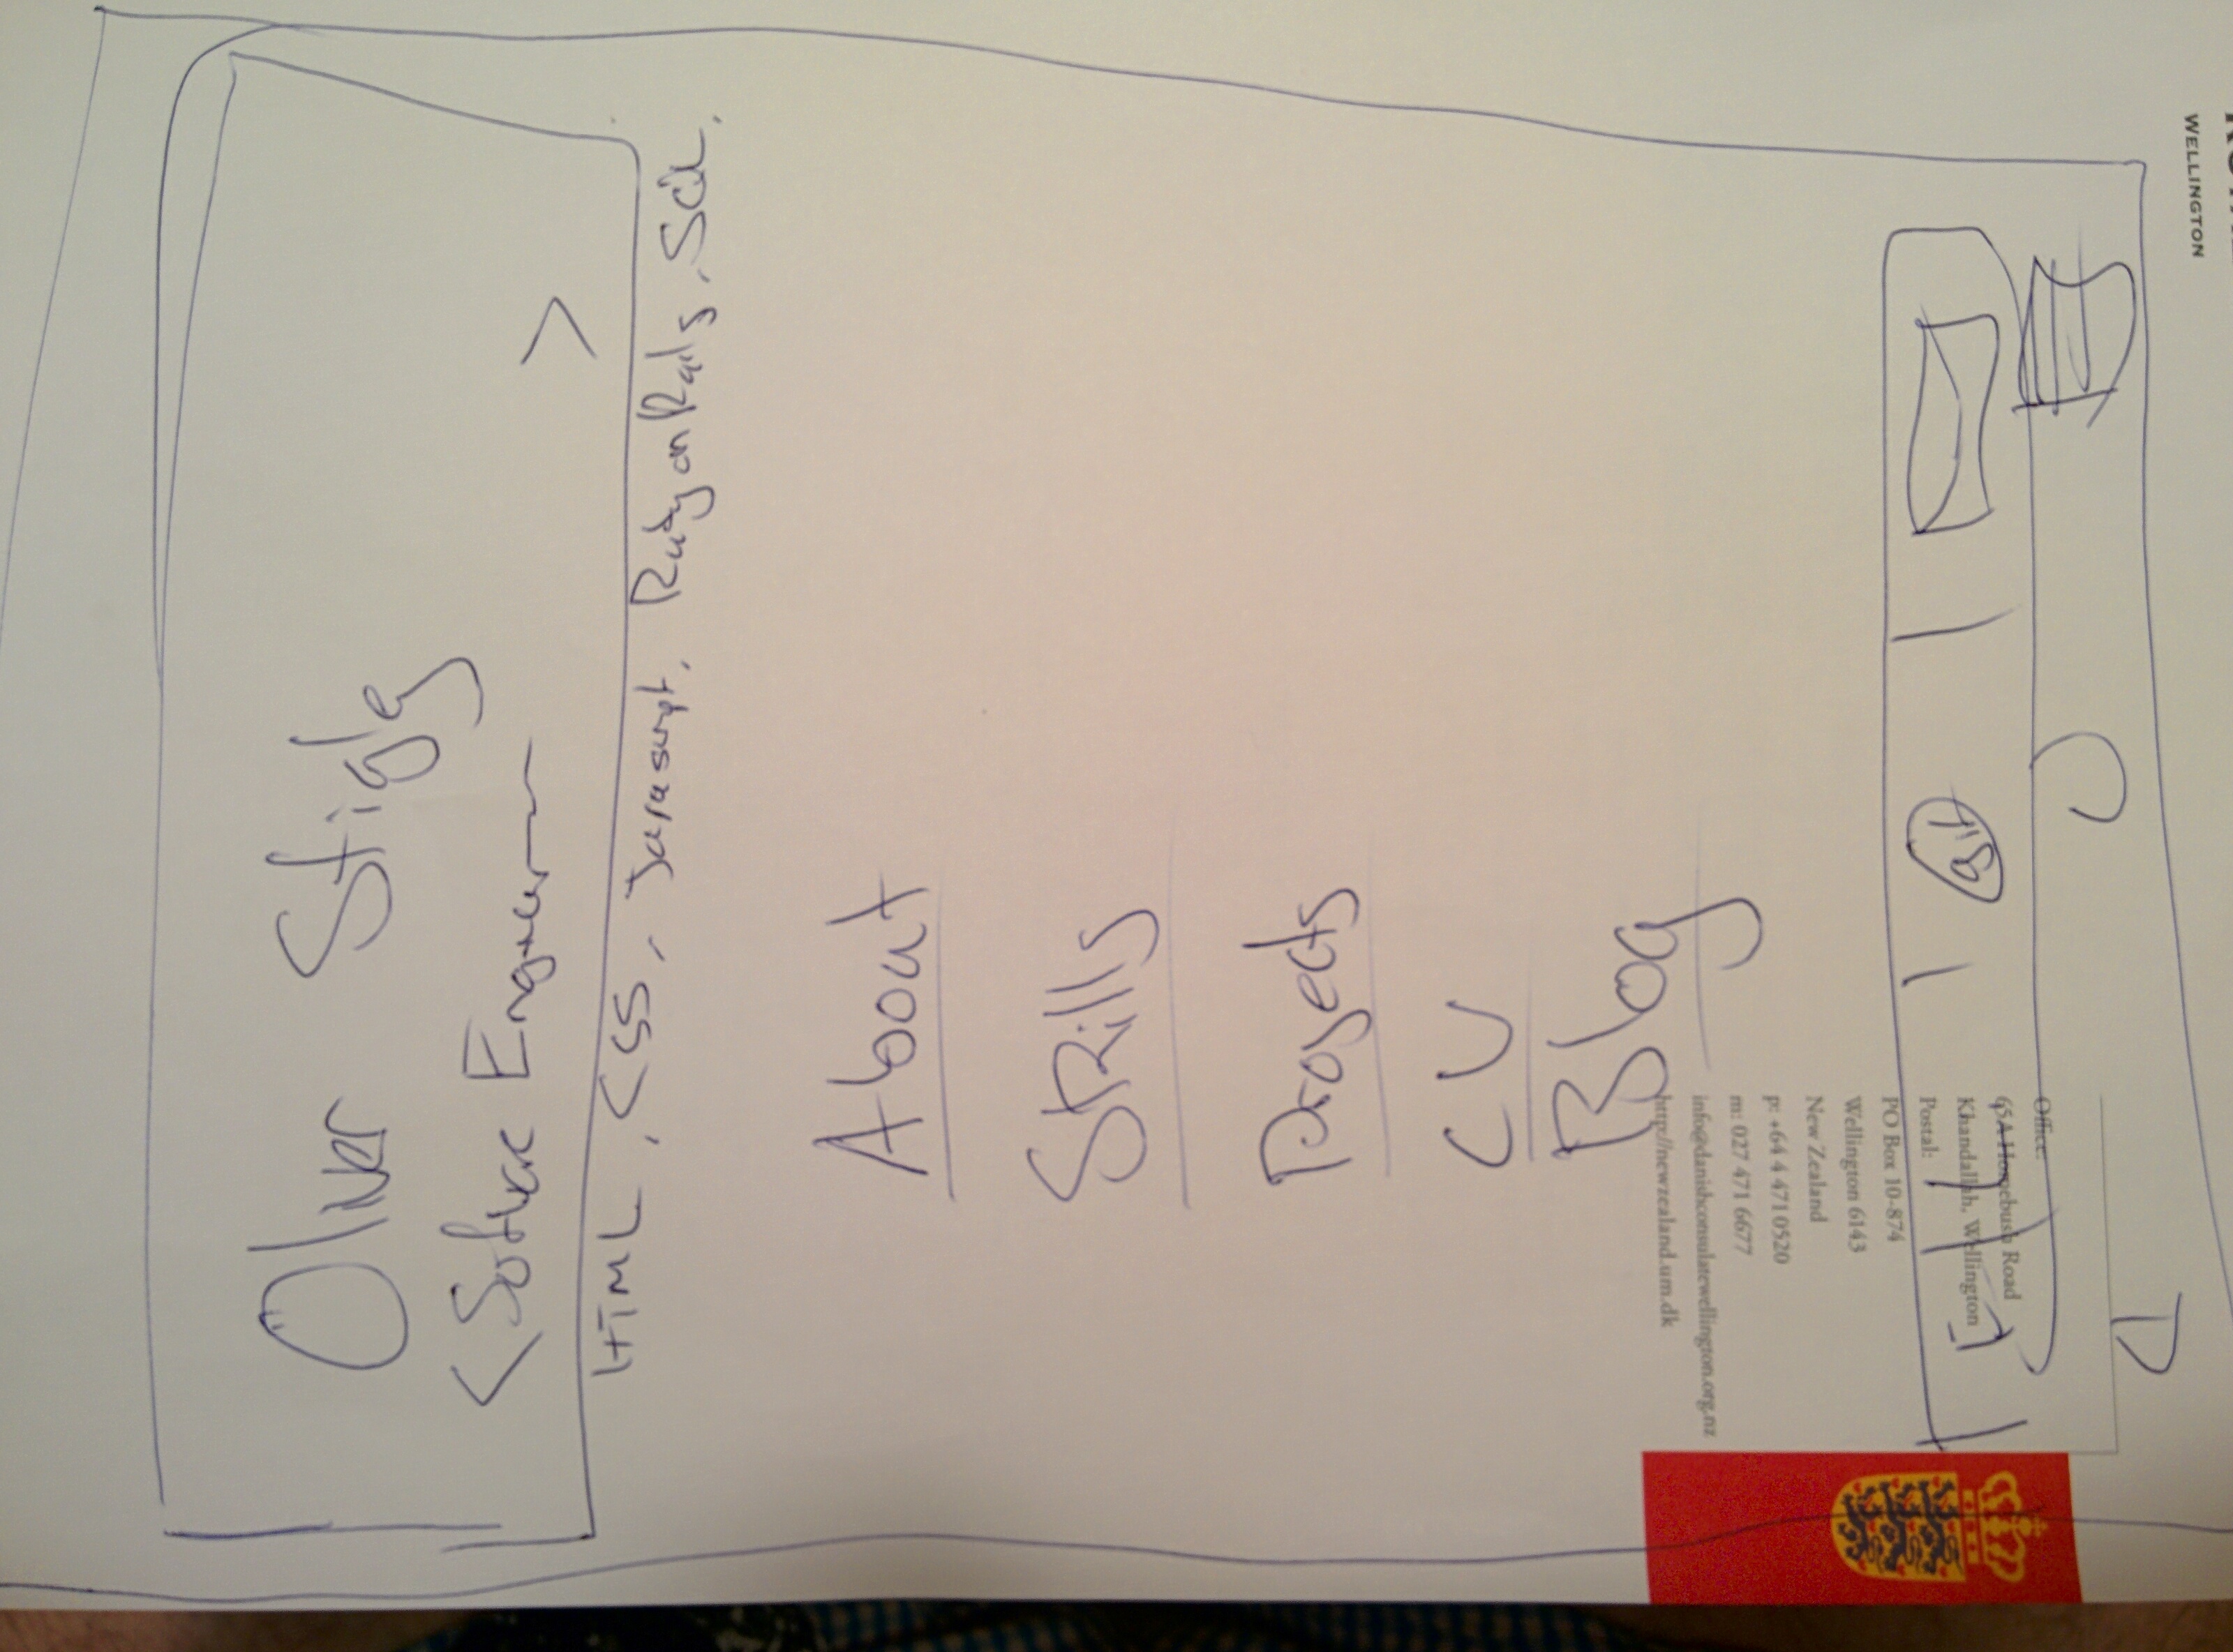 Oliver Stigly
<Software Engineer >
HTML, CSS, Javascript, Ruby on Rails, SQL.
About
Skills
Projects
CV
Blog
Git
WELLINGTON
Office:
65A Homebush Road
Khandallah, Wellington
Postal:
PO Box 10-874
Wellington 6143
New Zealand
p: +64 4 471 0520
m: 027 471 6677
info@danishconsulatewellington.org.nz
http://newzealand.um.dk